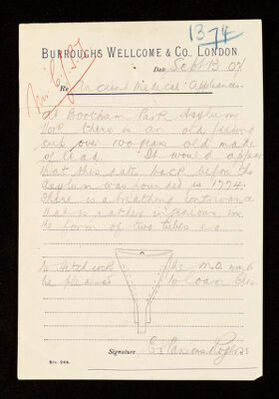 13 74
BURROUGHS WELLCOME & CO., LONDON.
Date Sept 13 07
Re Ancient Medical Appliances
At Bootham Park Asylum
York there is an old feeding
cup over 100 years old made
of lead. It would appear
that this dates back before the
Asylum was founded in 1774.
There is a breathing contrivance
that is rather ingenious in
the form of two tubes e.g.
Dr Hitchcock the M.O. wd
be pleased to loan this
Signature C. Parsons Rogers